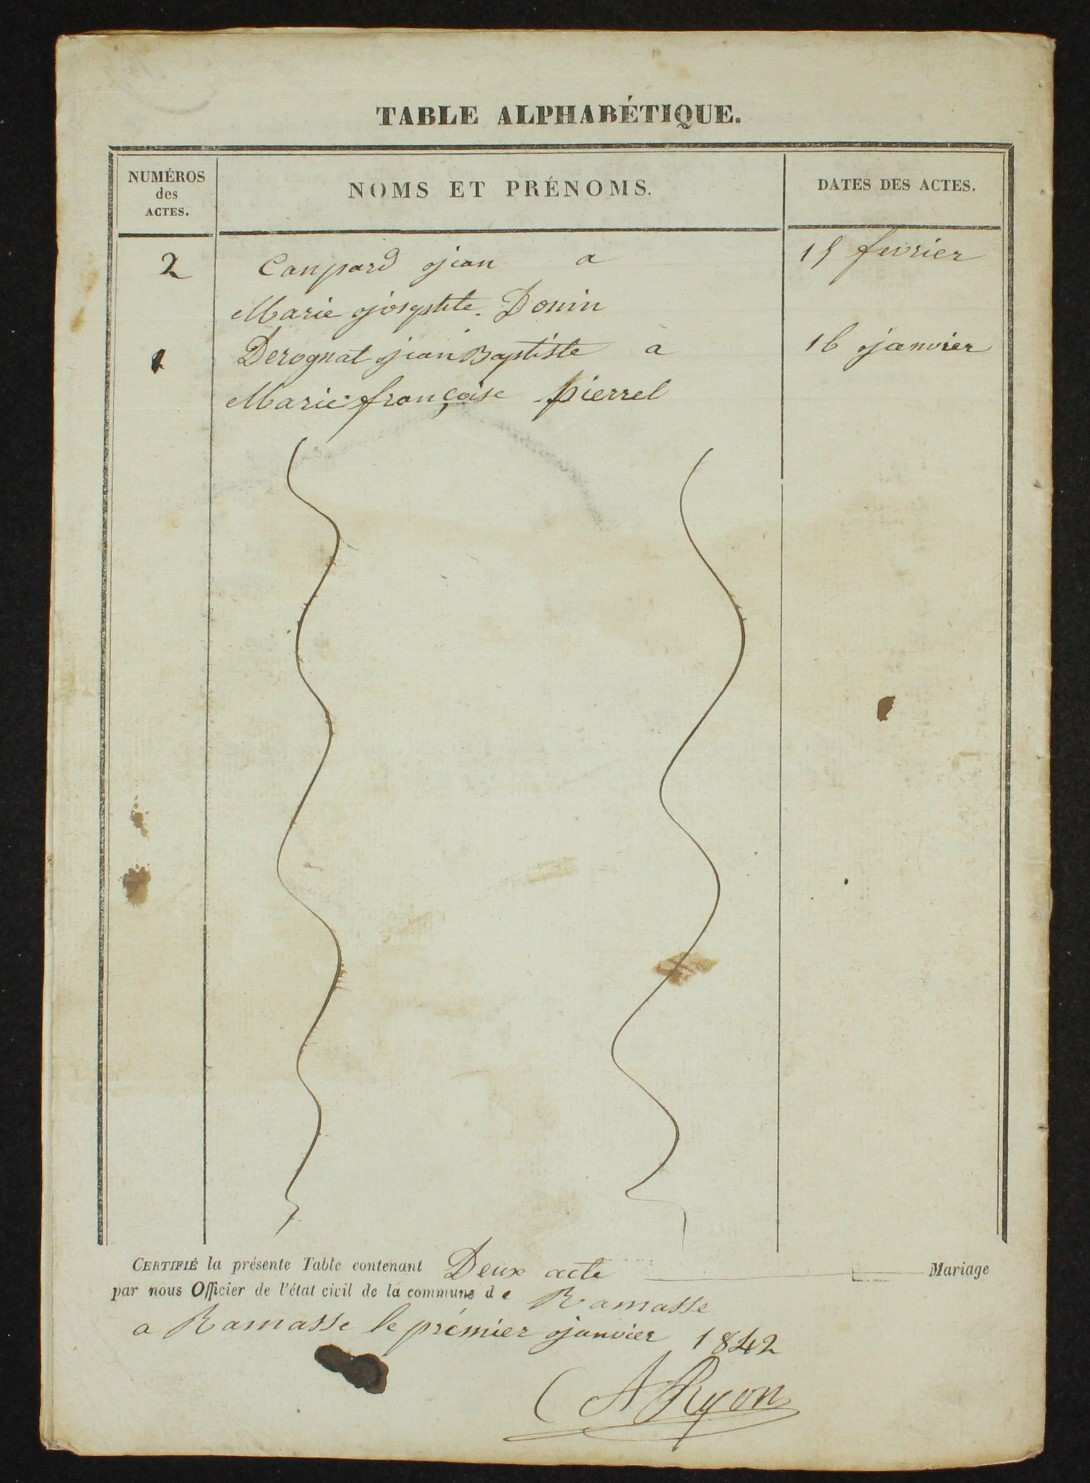 TABLE ALPHABÉTIQUE.
NUMÉROS
des
ACTES.
NOMS ET PRÉNOMS.
DATES DES ACTES.
2 Canpard jean a 15 fevrier
Marie Donin
1 Derognat jean Baptiste a 16 janvier
Marie françoise pierrel
CERTIFIÉ la présente Table contenant Deux acte Mariage
par nous Officier de l'état civil de la commune de Ramasse
a Ramasse le premier janvier 1842
A Ryon